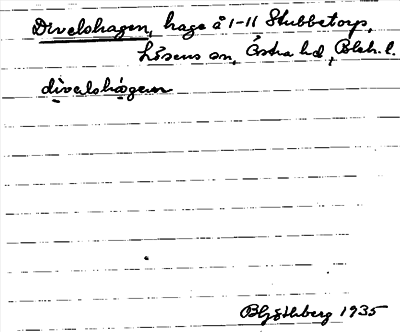 Divelshagen, hage å 1-11 Stubbetorp,
Lösens sn, Östra hd, Blek. l.
divelshagen
1935